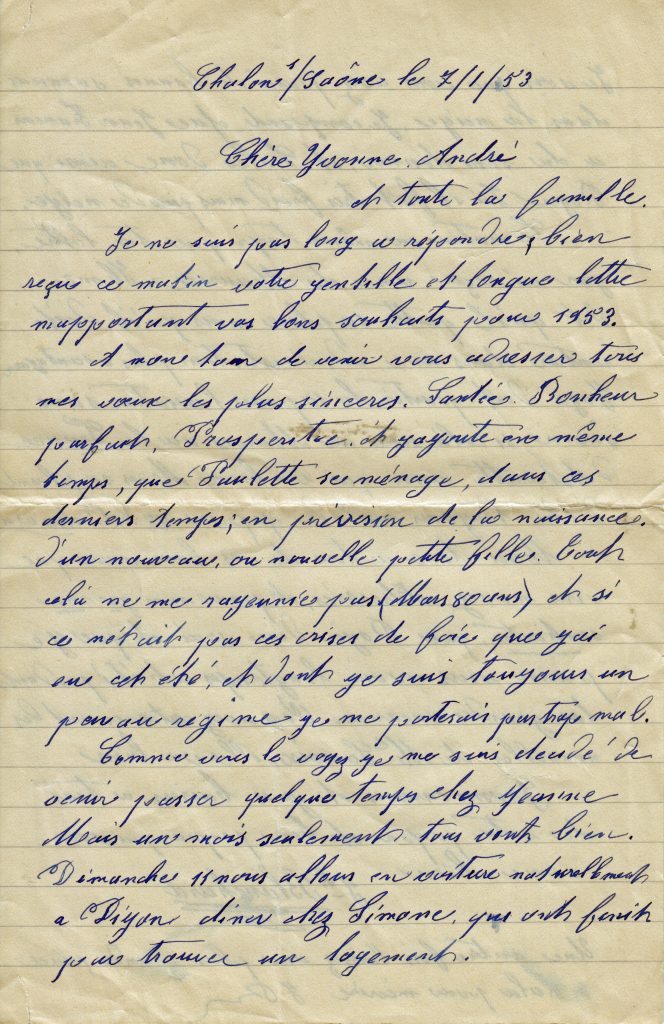 Chalon s/Saône le 7/1/53
Chère Yvonne. André
et toute la famille.
Je ne suis pas long a répondre, bien
reçue ce matin votre gentille et longue lettre
m'apportant vos bons souhaits pour 1953.
A mon tour de venir vous adresser tous
mes vœux les plus sincères. Santée. Bonheur
parfait, Prosperitée. et y'ayoute en même
temps, que Paulette se ménage, dans ces
derniers temps; en prévision de la naissance.
d'un nouveau, ou nouvelle petite fille. Tout
cela ne me rayeunie pas (Mars 80 ans) et si
ce n'était pas ces crises de foie que y'ai
eue cet été, et dont ye suis touyours un
peu au régime ye me porterais pas trop mal.
Comme vous le voyez ye me suis décidé de
venir passer quelque temps chez Yeanne
Mais un mois seulement tous vont bien.
Dimanche 11 nous allons en voiture naturellement
a Diyon diner chez Simone, qui ont finit
par trouver un logement.